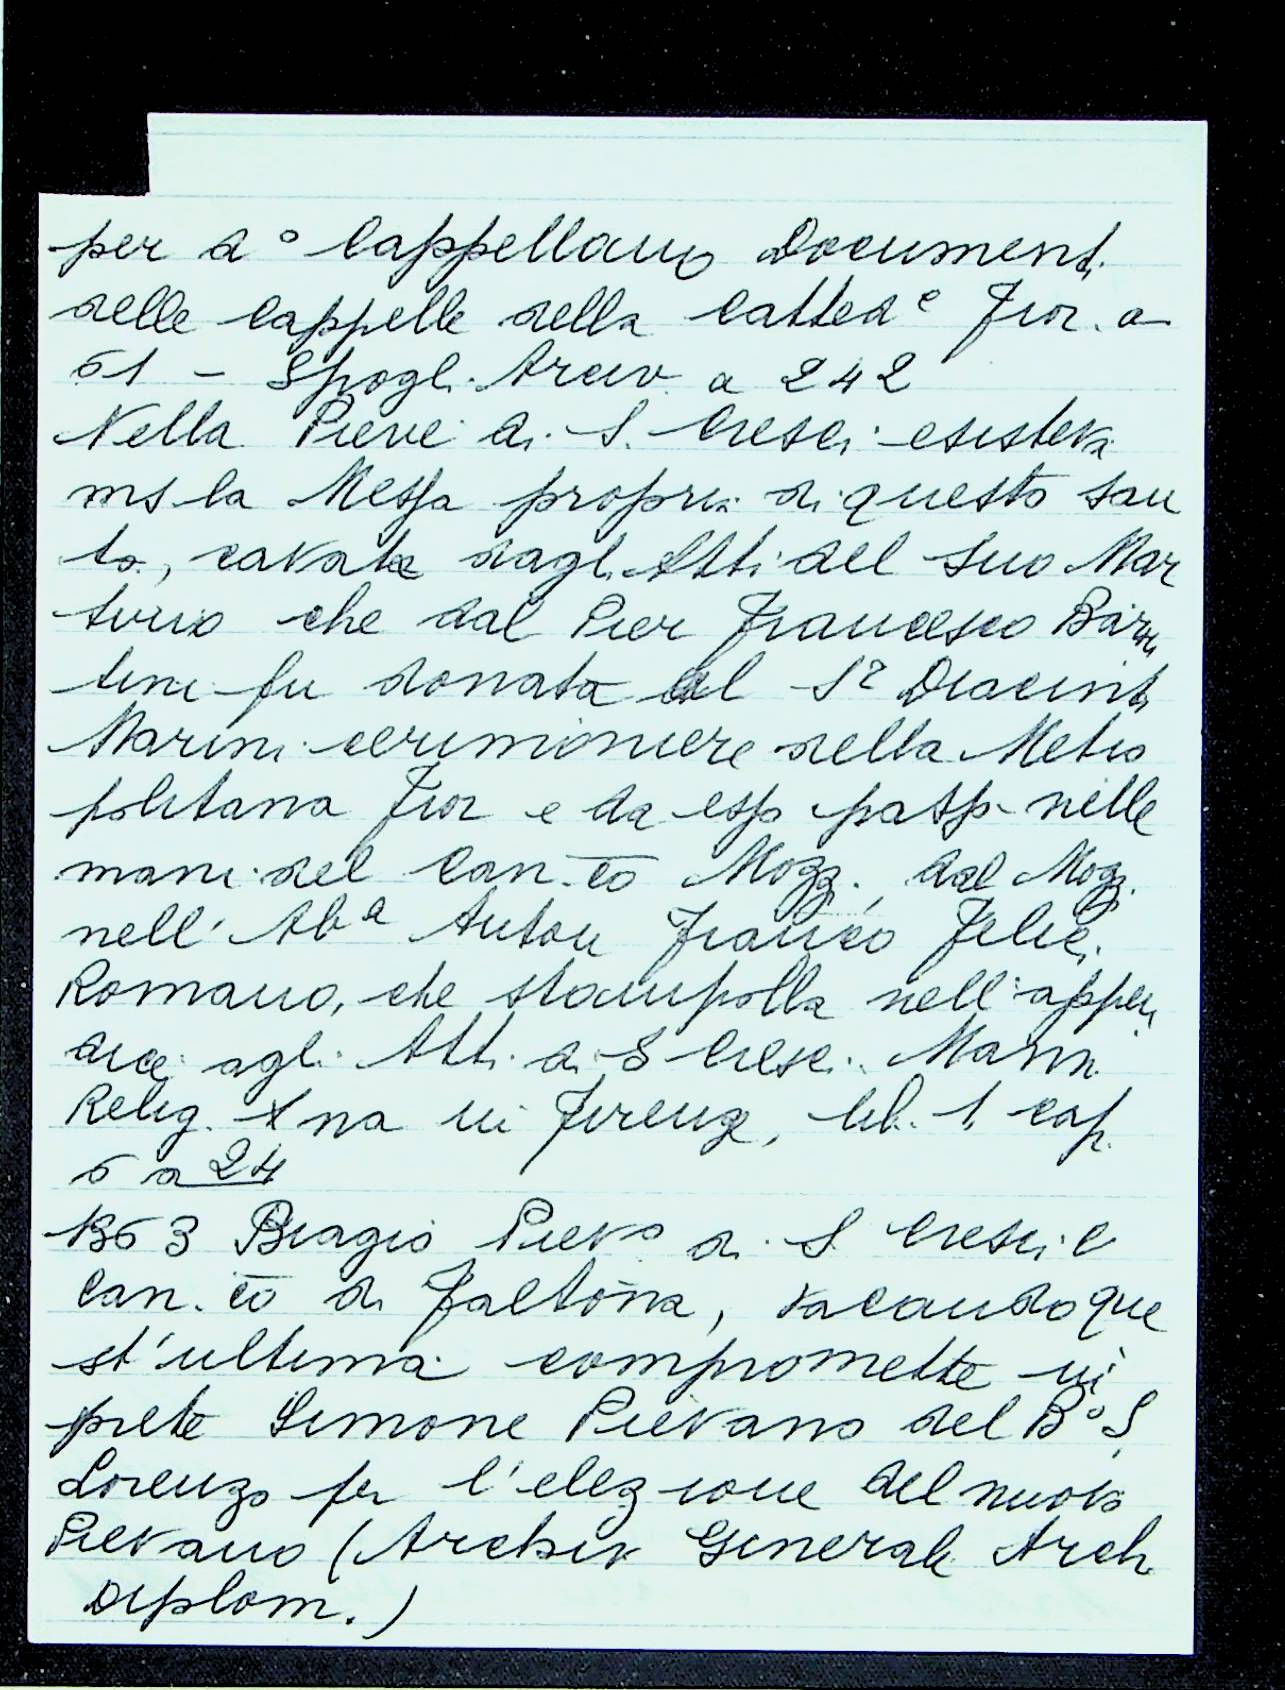 per d° Cappellano Documenti
delle Cappelle della Catted^e Fior. a
61 - Spogli Arciv. a 242
Nella Pieve di S. Cresci esisteva
ms la Messa propria di questo San
to, cavata dagli Atti del suo Mar
tirio che dal Pier Francesco
fu donata al S^r Diacinto
Marini cerimoniere della Metro
politana Fior e da esso passò nelle
mani del Can.co Mozzi, dal Mozz.
nell' Ab^a Anton Franc.o Felici
Romano, che stampolla nell' appen
dice agli Atti di S Cresci. Mann
Relig. Xna in Firenze, lib. 1, cap.
6 a 24
1363 Biagio Piev° di S. Cresci e
Can.co di Faltona, vacando que
st'ultima compromette in
prete Simone Pievano del B° S.
Lorenzo per l'elezione del nuovo
Pievano (Archiv Generale Arch
Diplom.)